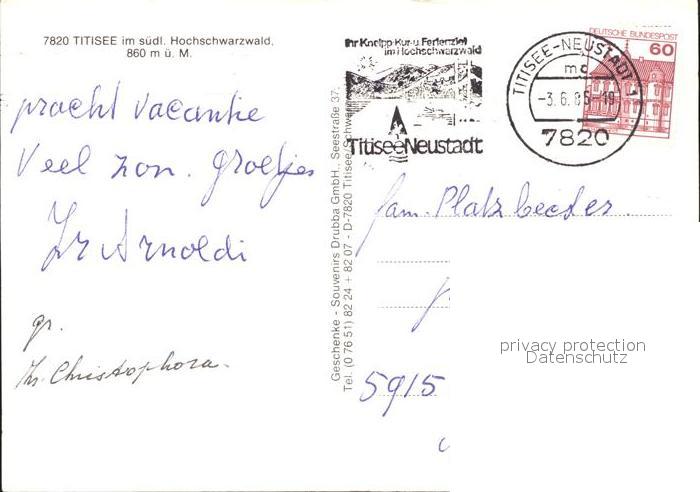 7820 TITISEE im südl. Hochschwarzwald,
860 m ü. M.
pracht vacantie
Veel zon. groetjes
Zr Arnoldi
gr.
Zr. Christophora.
Geschenke - Souvenirs Drubba GmbH., Seestraße 37,
Tel. (0 76 51) 82 24 + 82 07 - D-7820 Titisee/Schwarz
Ihr Kneipp-Kur-u Ferienziel
im Hochschwarzwald
Titisee Neustadt
TITISEE-NEUSTADT 1
mc
-3.6.86-19
7820
DEUTSCHE BUNDESPOST
60
fam. Platzbecker.
5915
privacy protection
Datenschutz